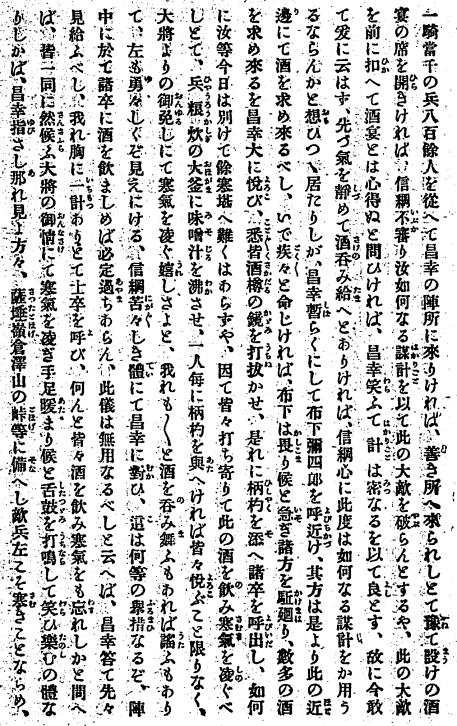 一騎當千の兵八百餘人を從へて昌幸の陣所に來りければ、善き所へ來られしとて豫て設けの酒
宴の席を開きければ、信綱不審り汝如何なる謀計を以て此の大敵を破らんとするや、此の大敵
を前に扣へて酒宴とは心得ぬと問ひければ、昌幸笑ふて計は密なるを以て良とす、故に今敢
て爰に云はず、先づ氣を靜めて酒呑み給へとありければ、信綱心に此度は如何なる謀計をか用う
るならんかと想ひつゝ居たりしが、昌幸暫らくにして布下彌四郎を呼近け、其方は是より此の近
邊にて酒を求め來るべし、いで疾々と命じければ、布下は畏り候と急ぎ諸方を駈廻り、數多の酒
を求め來るを昌幸大に悅び、悉皆酒樽の鏡を打拔かせ、是れに柄杓を添へ諸卒を呼出し、如何
に汝等今日は別けて餘寒堪へ難くはあらずや、因て皆々打ち寄りて此の酒を飮み寒氣を凌ぐべ
しとて、兵粮炊の大釜に味噌汁を沸させ、一人每に柄杓を與へければ皆々悅ぶこと限りなく、
大將よりの御免しにて寒氣を凌ぐ嬉しさよと、我れも〱と酒を呑み舞ふもあれば謠ふもあり
て、左も勇々しくぞ見えにける、信綱苦々しき體にて昌幸に對ひ、這は何等の擧措なるぞ、陣
中に於て諸卒に酒を飮ましめば必定過ちあらん、此儀は無用なるべしと云へば、昌幸答て先々
見給ふべし、我れ胸に一計ありとて士卒を呼び、何んと皆々酒を飮み寒氣をも忘れしかと問へ
ば、皆一同に然候ふ大將の御情にて寒氣を凌ぎ手足暖まり候と舌鼓を打鳴して笑ひ樂むの體な
りしかば、昌幸指さし那れ見よ方々、薩埵嶺倉澤山の峠等に備へし敵兵左こそ寒きことならめ、